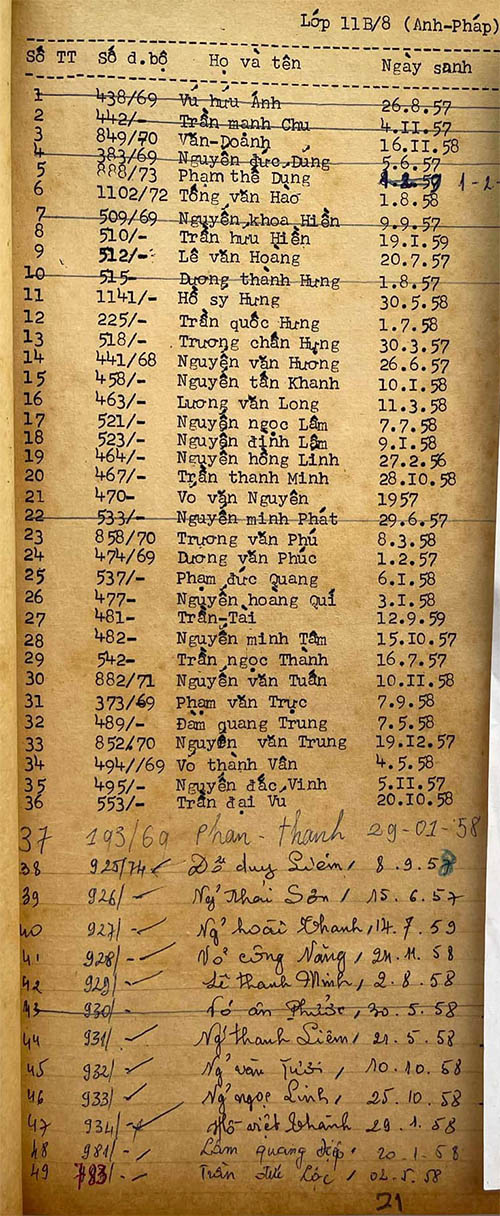 Lớp 11B/8 (Anh-Pháp)
Số TT Số d.bộ Họ và tên Ngày sanh
1 438/69 Vũ hữu Ánh 26.8.57
2 442/- Trần mạnh Chu 4.II.57
3 849/70 Văn-Doảnh 16.II.58
4 383/69 Nguyễn đức Dũng 5.6.57
5 888/73 Phạm thế Dung 1.2.59 1-2-
6 1102/72 Tống văn Hào 1.8.58
7 509/69 Nguyễn khoa Hiền 9.9.57
8 510/- Trần hữu Hiền 19.I.59
9 512/- Lê văn Hoàng 20.7.57
10 515- Dương thành Hưng 1.8.57
11 1141/- Hồ sy Hưng 30.5.58
12 225/- Trần quốc Hưng 1.7.58
13 518/- Trương chấn Hưng 30.3.57
14 441/68 Nguyễn văn Hương 26.6.57
15 458/- Nguyễn tấn Khanh 10.I.58
16 463/- Lương văn Long 11.3.58
17 521/- Nguyễn ngọc Lâm 7.7.58
18 523/- Nguyễn định Lâm 9.I.58
19 464/- Nguyễn hồng Linh 27.2.56
20 467/- Trần thanh Minh 28.IO.58
21 470- Vo văn Nguyên 1957
22 533/- Nguyễn minh Phát 29.6.57
23 858/70 Trương văn Phú 8.3.58
24 474/69 Dương văn Phúc 1.2.57
25 537/- Phạm đức Quang 6.I.58
26 477- Nguyễn hoàng Quí 3.I.58
27 481- Trần-Tài 12.9.59
28 482- Nguyễn minh Tâm 15.IO.57
29 542- Trần ngọc Thành 16.7.57
30 882/71 Nguyễn văn Tuấn 10.II.58
31 373/69 Phạm văn Trực 7.9.58
32 489/- Đàm quang Trung 7.5.58
33 852/70 Nguyễn văn Trung 19.I2.57
34 494//69 Võ thành Vân 4.5.58
35 495/- Nguyễn đắc Vinh 5.II.57
36 553/- Trần đại Vu 20.IO.58
37 193/69 Phan - thanh 29-01-58
38 925/74 Đỗ duy Liêm, 8.9.57
39 926/- Ng~ Thái Sơn, 15.6.57
40 927/- Ng~ hoài Khanh, 14.7.59
41 928/- Võ công Năng, 24.11.58
42 929/- Lê thanh Minh, 2.8.58
43 930/- Võ ân Phước, 30.5.58
44 931/- Ng~ thanh Liêm, 21.5.58
45 932/- Ng~ văn Tươi, 10.10.58
46 933/- Ng~ ngọc Linh, 25.10.58
47 934/- Hồ viết Khánh 29.1.58
48 981/- Lâm quang điệp, 20-1-58
49 783/- Trần đức Lộc, 02.5.58
21